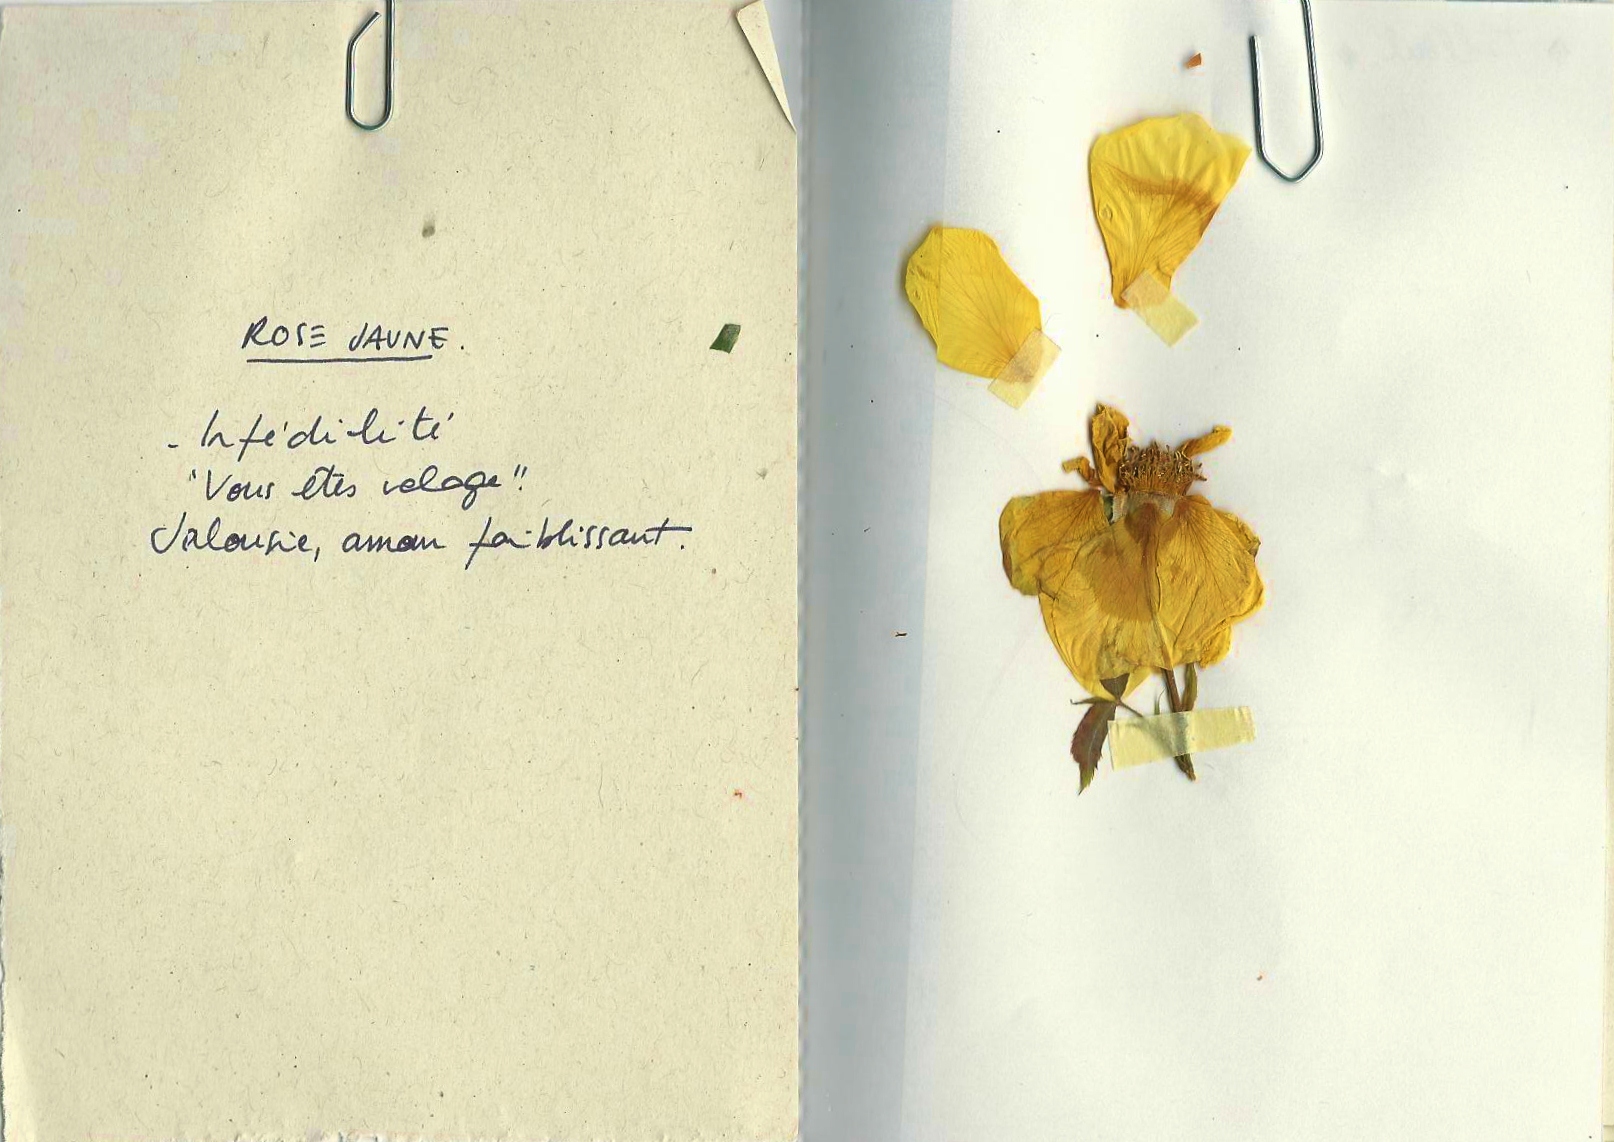 ROSE JAUNE.
- Infédilité
"Vous êtes volage".
Jalousie, amour faiblissant.